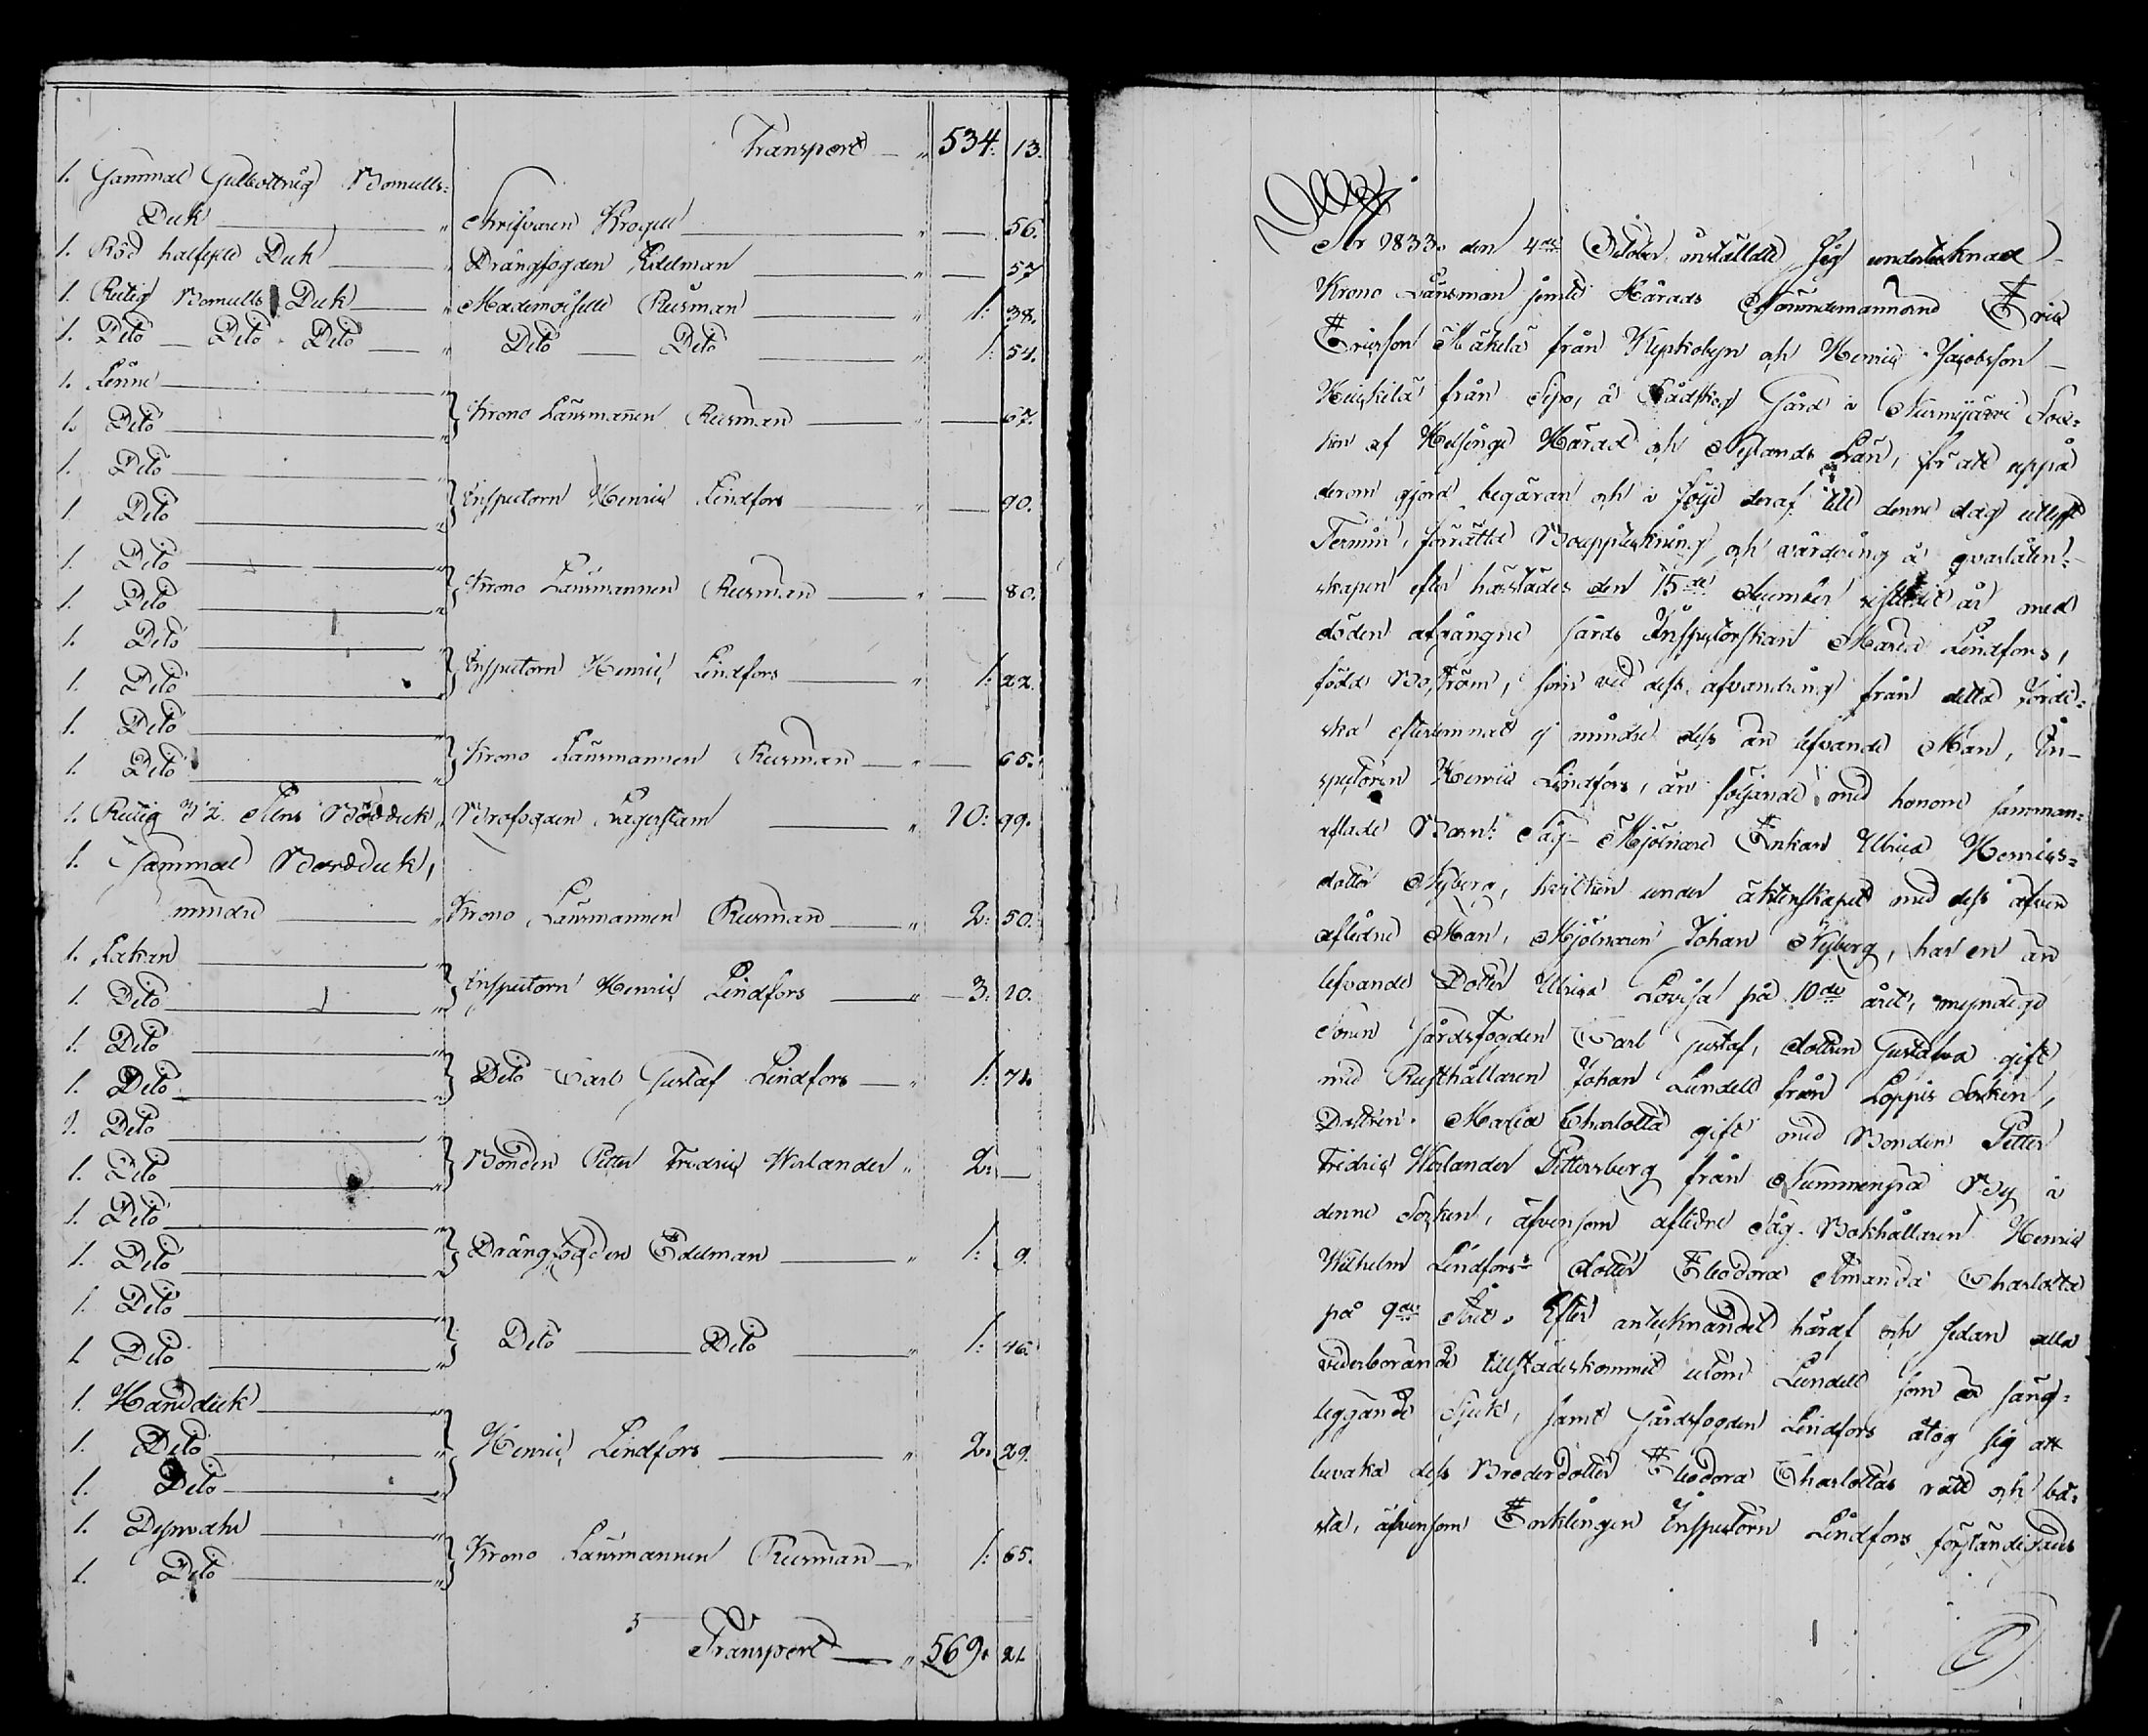 Transport — " 534: 13.
1. Gammal Gulbottnig Bomulls-
Duk — " Skrifvaren Krogell — " — 56.
1. Röd halfsiden Duk — " Drängfogden Edelman — " — 57
1. Rutig Bomulls Duk — " Mademoiselle Rusman — " 1: 38.
1. Dito — Dito - Dito — " Dito — Dito — " 1: 54.
1. Linne — "
1. Dito — " } Krono Länsmannen Rusman — " — 67.
1. Dito — "
1. Dito — " } Inspectorn Henric Lindfors — " — 90.
1. Dito — "
1. Dito — " } Krono Länsmannen Rusman — " — 80.
1. Dito — "
1. Dito — " } Inspectorn Henric Lindfors — " 1: 22.
1. Dito — "
1. Dito — " } Krono Länsmannen Rusman — " — 65.
1. Rutig 3/2 Alns Bordduk " Brofogden Lagerstam — " 10: 99.
1. Gammal Bordduk,
mindre — " Krono Länsmannen Rusman — " 2: 50.
1. Lakan — "
1. Dito — " } Inspectorn Henric Lindfors — " 3: 10.
1. Dito — "
1. Dito — " } Dito Carl Gustaf Lindfors — " 1: 71.
1. Dito — "
1. Dito — " } Bonden Petter Fredric Werlander " 2: —
1. Dito — "
1. Dito — " } Drängfogden Edelman — " 1: 9.
1. Dito — "
1. Dito — " } Dito — Dito — " 1: 46.
1. Handduk — "
1. Dito — " } Henric Lindfors — " 2: 29.
1. Dito — "
1. Dynvahr — "
1. Dito — " } Krono Länsmannen Rusman — " 1: 65.
Transport — " 569: 21.
År 1833. den 4de October inställde sig undertecknad
Krono Länsman jemte Härads Nämndemännerne Eric
Ericsson Mäkelä från Klipkobyn och Henric Jacobsson
Heickilä från Sipo, å Rådskog Gård i Nurmijärvi Sock-
ken af Helsinge Härad och Nylands Län, för att uppå
derom gjord begäran och i följe deraf till denne dag utlyst
Termin, förrätta Bouppteckning och värdering å qvarlåten-
skapen efter härstädes den 15de December sistledit år med
döden afgångne Gårds Inspectorskan Maria Lindfors,
född Boström, som vid dess afvandring från detta jordi-
ska efterlemnat ej mindre dess än lefvande Man, In-
spectoren Henric Lindfors, än följande med honom samman-
aflade Barn: Såg- Mjölnare Enkan Ulrica Henrics-
dotter Nyberg, hvilken under äktenskapet med dess äfven
aflidne Man, Mjölnaren Johan Nyberg, har en än
lefvande Dotter Ulrica Lovisa på 10de året, myndige
Sonen Gårdsfogden Carl Gustaf, dottren Gustafva gift
med Rusthållaren Johan Lundell från Loppis Socken,
Dottren Maria Charlotta gift med Bonden Petter
Fredric Werlander Pettersberg från Nummenpää By i
denne Socken, äfvensom aflidne Såg-Bokhållaren Henric
Wilhelm Lindfors's dotter Eleodora Amanda Charlotta
på 9de Året. Efter antecknandet häraf och sedan alla
vederbörande tillstädeskommit utom Lundell som är säng-
liggande Sjuk, samt Gårdsfogden Lindfors åtog sig att
bevaka dess Broderdotter Eleodora Charlottas rätt och bä-
sta, äfvensom Enklingen Inspectorn Lindfors förständigades